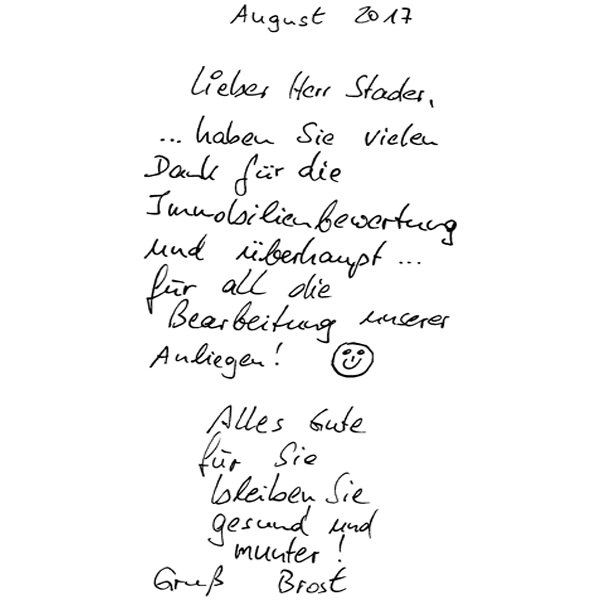 August 2017
Lieber Herr Stader,
... haben Sie vielen
Dank für die
Immobilienbewertung
und überhaupt ...
für all die
Bearbeitung unserer
Anliegen!
Alles Gute
für Sie
bleiben Sie
gesund und
munter!
Gruß Brost